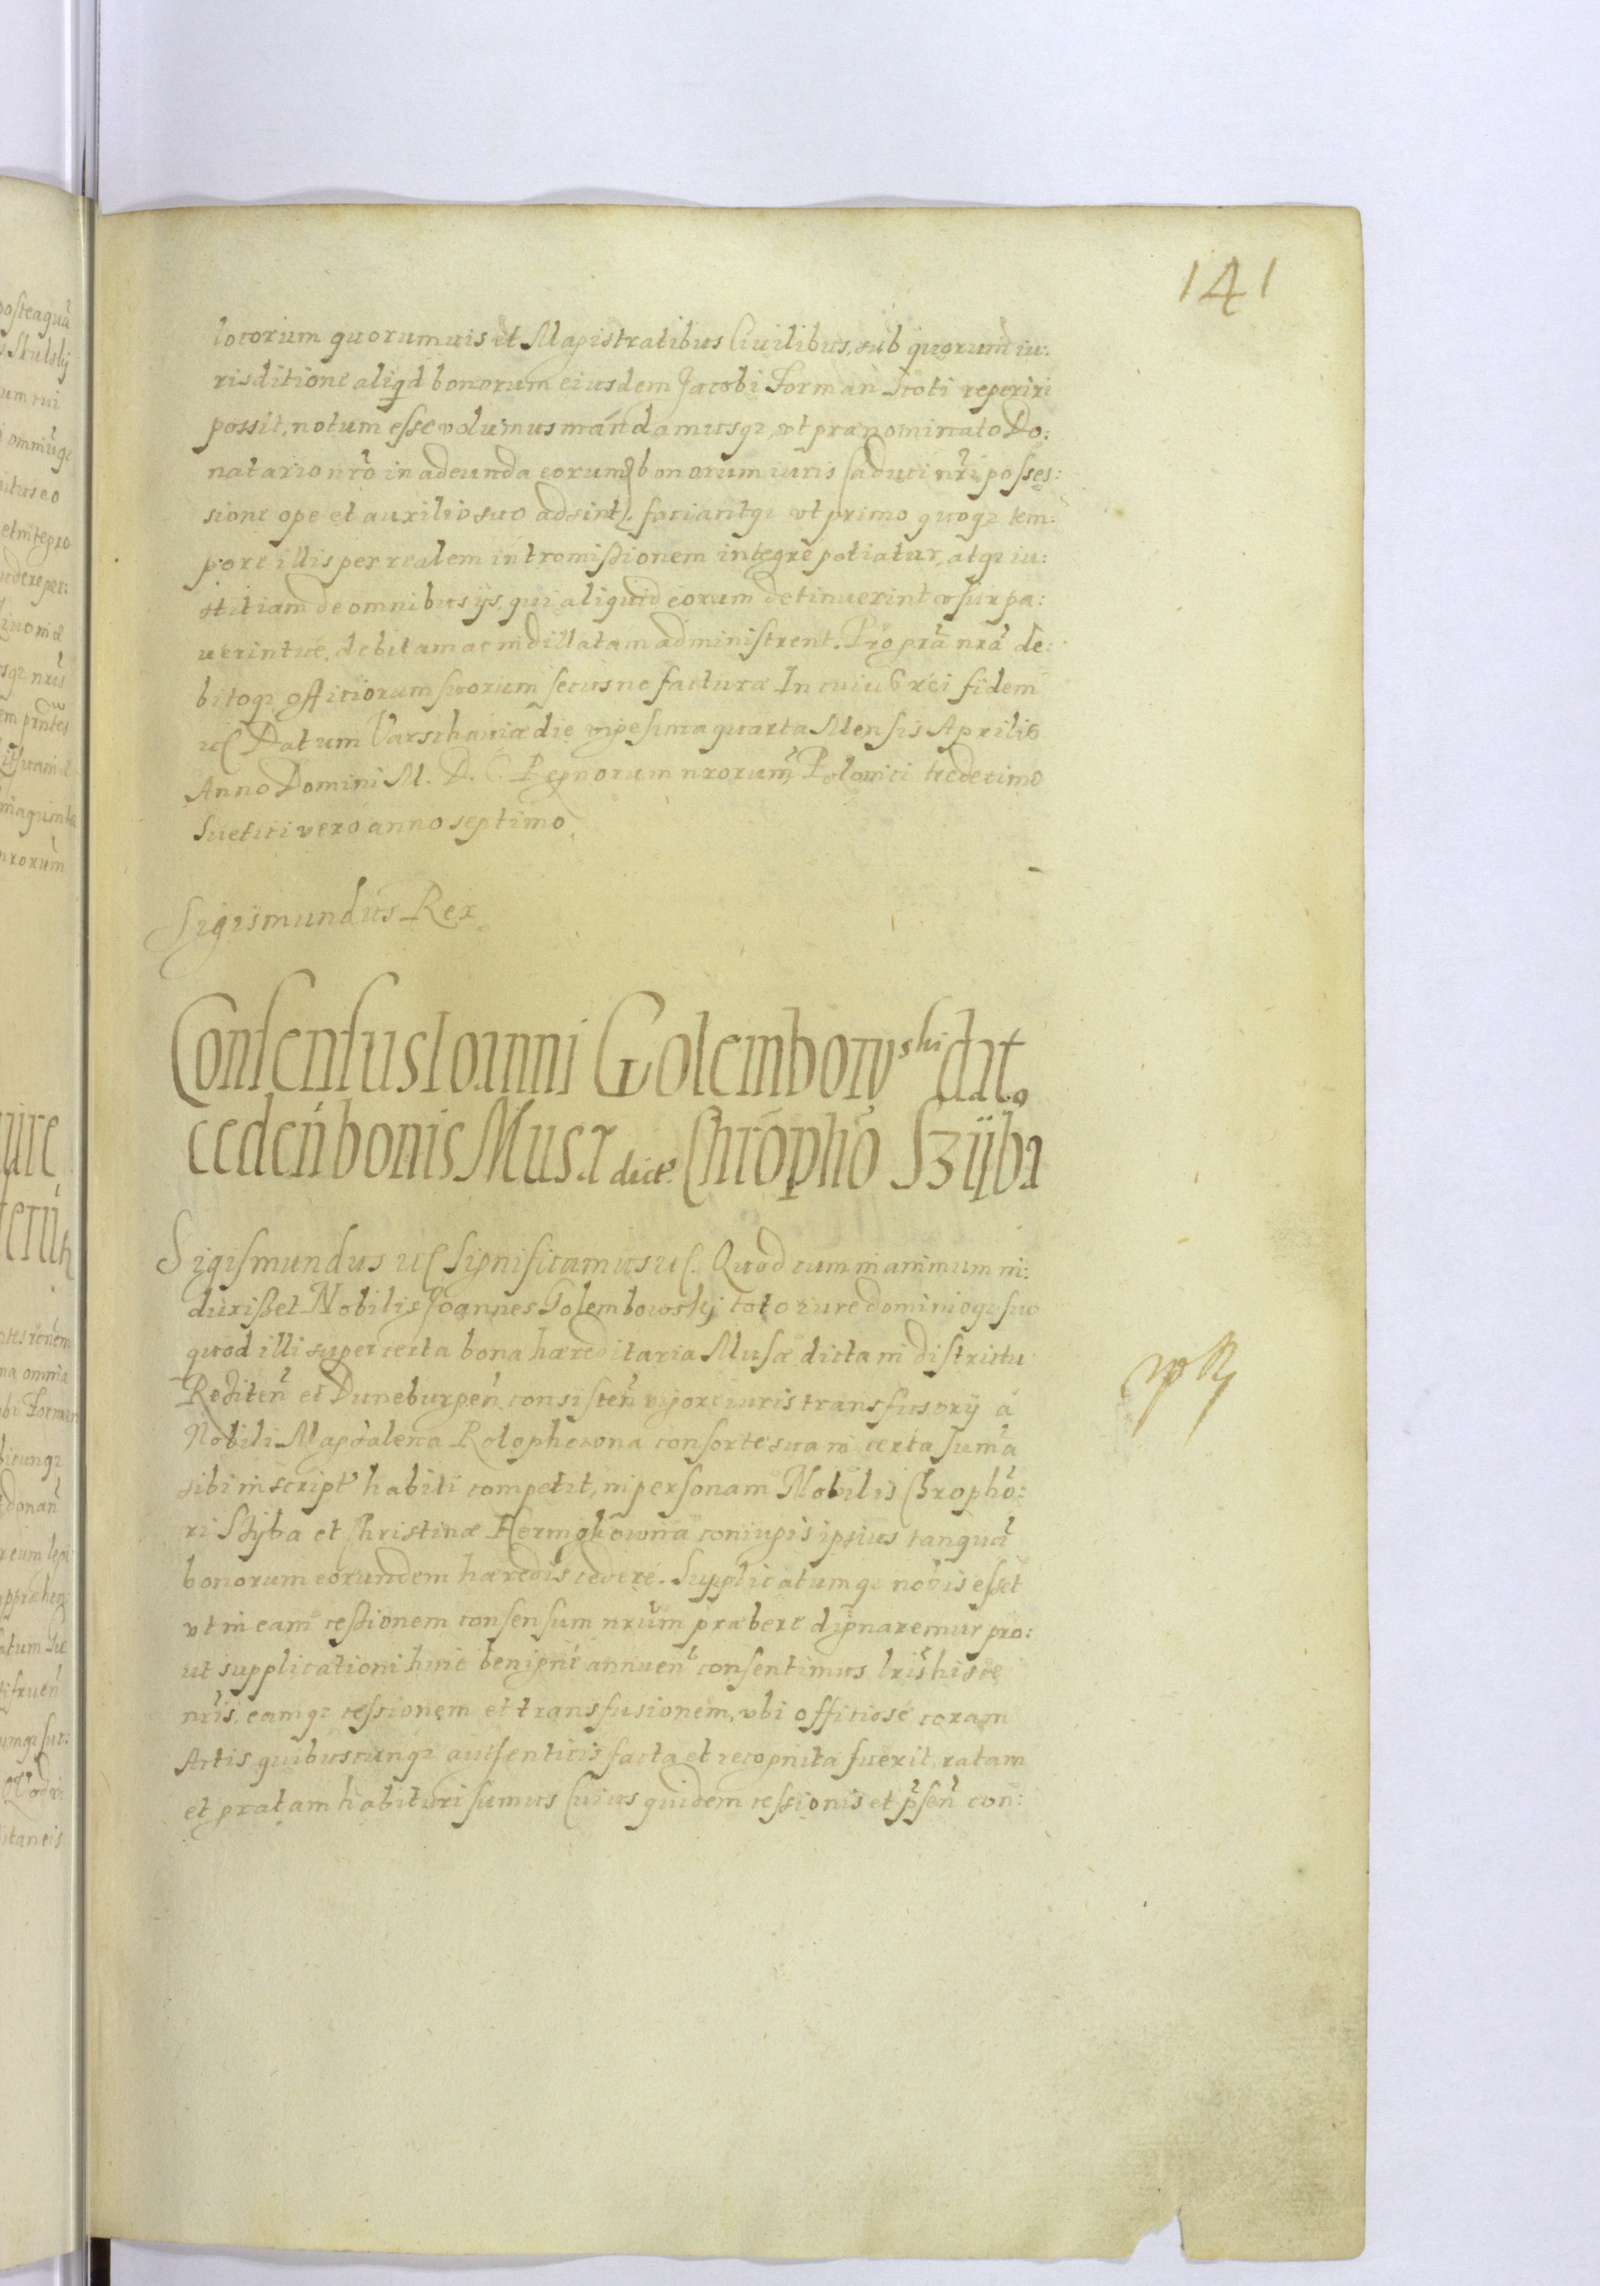 141
locorum quorumuis et Magistratibus Ciuilibus, sub quorum iu:
risditione aliqd bonorum eiusdem Jacobi Forman Scoti reperiri
possit, notum esse volumus mandamusq;, vt praenominato Do:
natario nro in adeunda eorum bonorum iuris Caduci nri posses:
sione ope et auxilio suo adsint. faciantq; vt primo quoq; tem:
pore illis per realem intromißionem integre potiatur, atq; iu:
stitiam de omnibus ijs, qui aliquid eorum detinuerint vsurpa:
uerintue, debitam ac indillatam administrent. Pro gra nra de:
bitoq; officiorum suorum secus ne facturae In cuius rei fidem
etc Datum Varschauiae die vigesima quarta Mensis Aprilis
Anno Domini M. D. C. Regnorum nrorum, Polonici tredecimo
Suetici vero anno septimo
Sigismundus Rex
Consensus Ioanni Golembowski dat9
ceden bonis Musa dict. Chrophо Szÿba
Sigismundus etc Significamus etc. Quod cum in animum in:
duxißet Nobilis Joannes Golembowskj toto iure dominioq; suo
quod illi super certa bona haereditaria Musa dicta in districtu
Rediten et Duneburgen consisten vigore iuris transfusorij à
Nobili Magdalena Rolophowna consorte sua in certa suma
sibi inscript habiti competit, in personam Nobilis Chropho:
ri Szyba et Christinae Hermgkowna coniugis ipsius tanqua
bonorum eorundem haeredis cedere. Supplicatumq; nobis esset
vt in eam ceßionem consensum nrum praebere dignaremur pro:
ut supplicationi huic benigne annuen consentimus lris hisce
nris, eamq; cessionem et transfusionem, vbi officiose coram
Actis quibuscunq; autenticis facta et recognita fuerit, ratam
et gratam habituri sumus Cuius quidem cessionis et psen con: